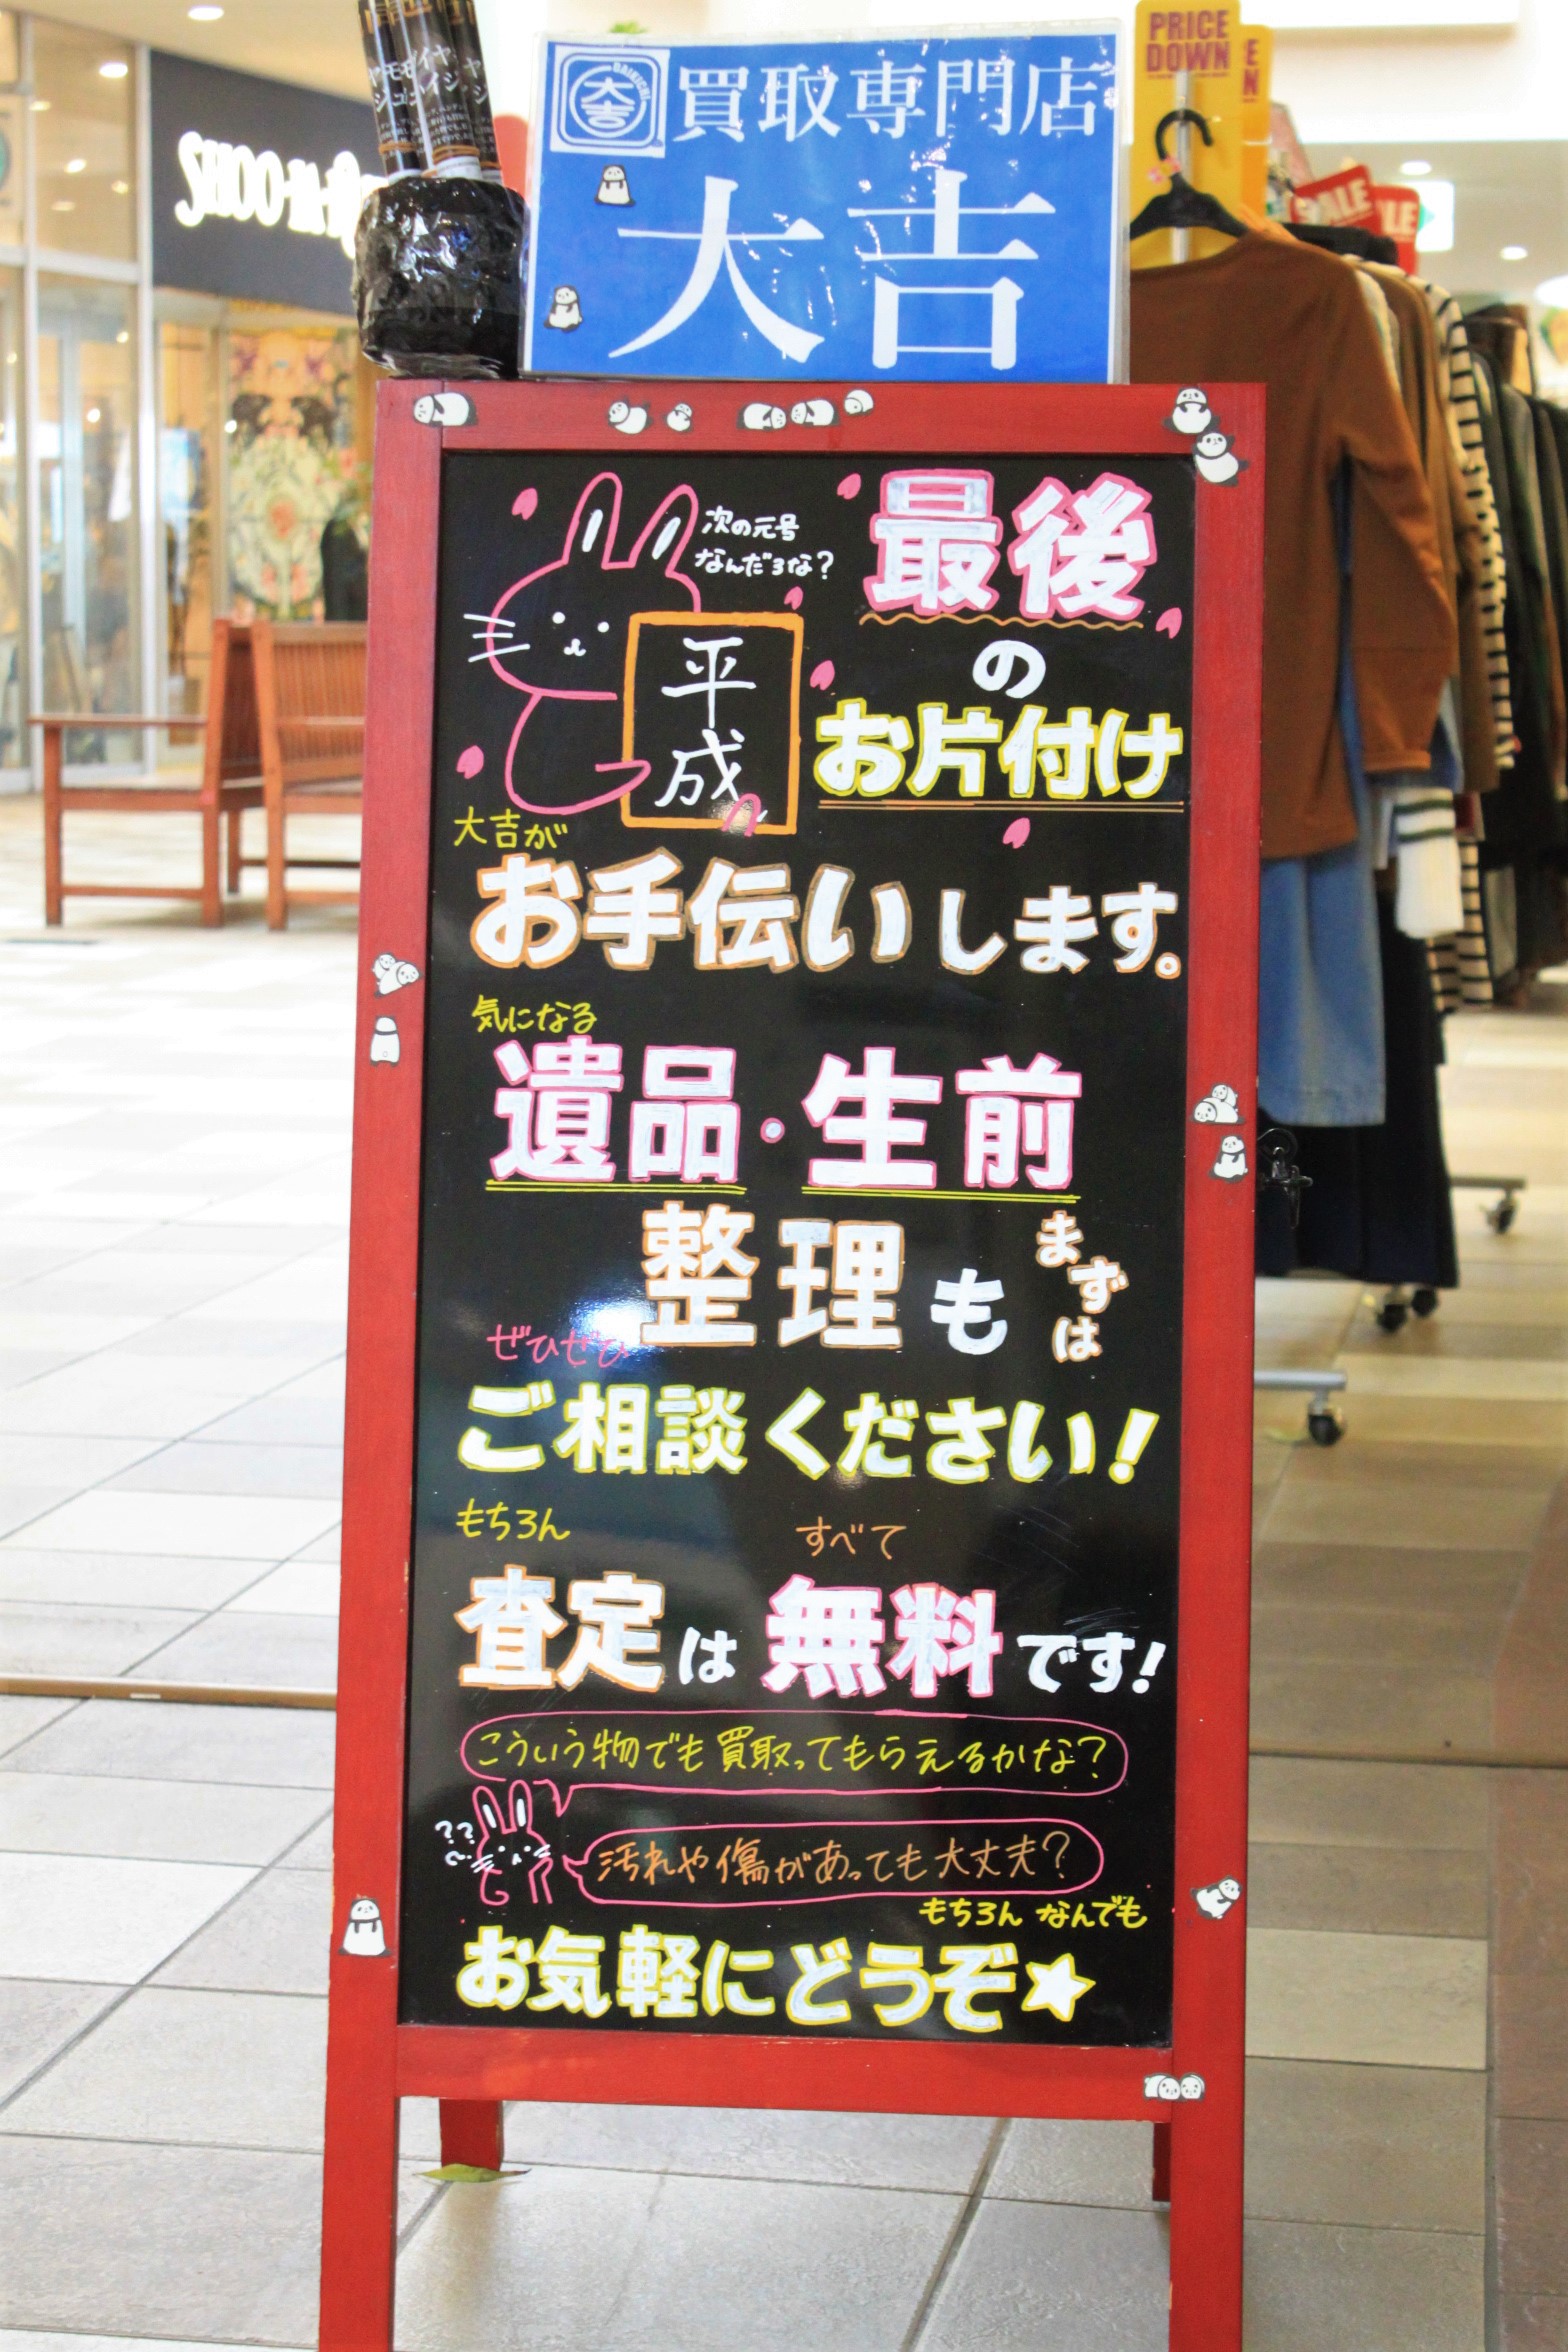 PRICE
DOWN
SALE
DAIKICHI
大吉
買取専門店
大吉
次の元号
なんだろな?
平成
最後
の
お片付け
大吉が
お手伝いします。
気になる
遺品・生前
整理も
まずは
ぜひぜひ
ご相談ください!
もちろん
すべて
査定は無料です!
こういう物でも買取ってもらえるかな?
??
汚れや傷があっても大丈夫?
もちろん なんでも
お気軽にどうぞ★